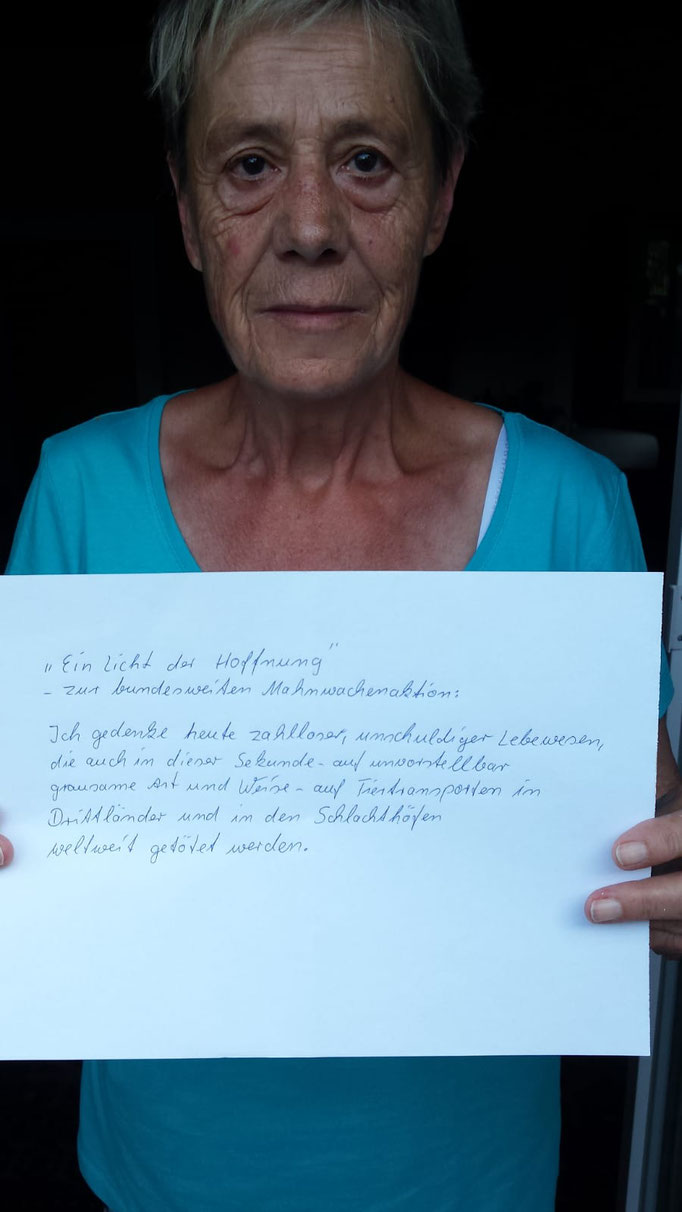 „Ein Licht der Hoffnung"
- zur bundesweiten Mahnwachenaktion:
Ich gedenke heute zahlloser, unschuldiger Lebewesen,
die auch in dieser Sekunde - auf unvorstellbar
grausame Art und Weise - auf Tiertransporten in
Drittländer und in den Schlachthöfen
weltweit getötet werden.